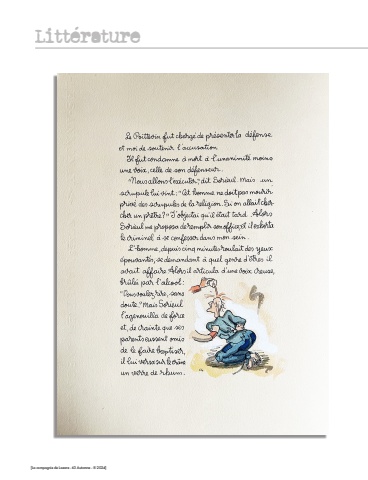 Littérature
Le Poittevin fut chargé de présenter la défense
et moi de soutenir l'accusation
Il fut condamné à mort à l'unanimité moins
une voix, celle de son défenseur.
"Nous allons l'exécuter," dit Sorieul. Mais un
scrupule lui vint: "Cet homme ne doit pas mourir
privé des scrupules de la religion. Si on allait cher-
cher un prêtre?" J'objectai qu'il était tard. Alors
Sorieul me proposa de remplir son office, et il exhorta
le criminel à se confesser dans mon sein.
L'homme, depuis cinq minutes roulait des yeux
épouvantés, se demandant à quel genre d'êtres il
avait affaire. Alors il articula d'une voix creuse,
brûlée par l'alcool:
"Vous voulez rire, sans
doute." Mais Sorieul
l'agenouilla de force
et, de crainte que ses
parents eussent omis
de le faire baptiser,
il lui versa sur le crâne
un verre de rhum.